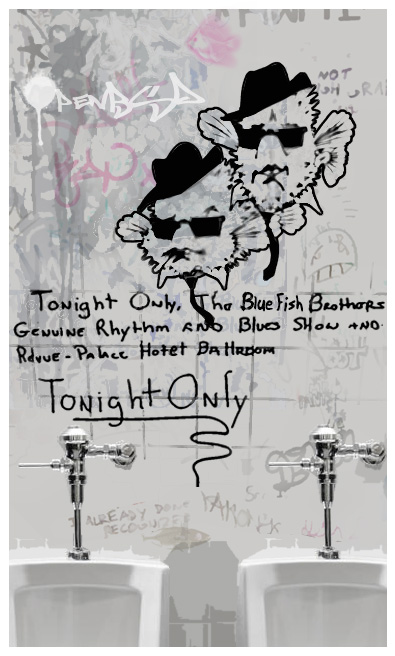 OpenBSD
NOT
Tonight Only, The BlueFish Brothers
Genuine Rhythm and Blues Show and
Revue - Palace Hotel Ballroom
Tonight Only
I ALREADY DONE
RECOGNIZE